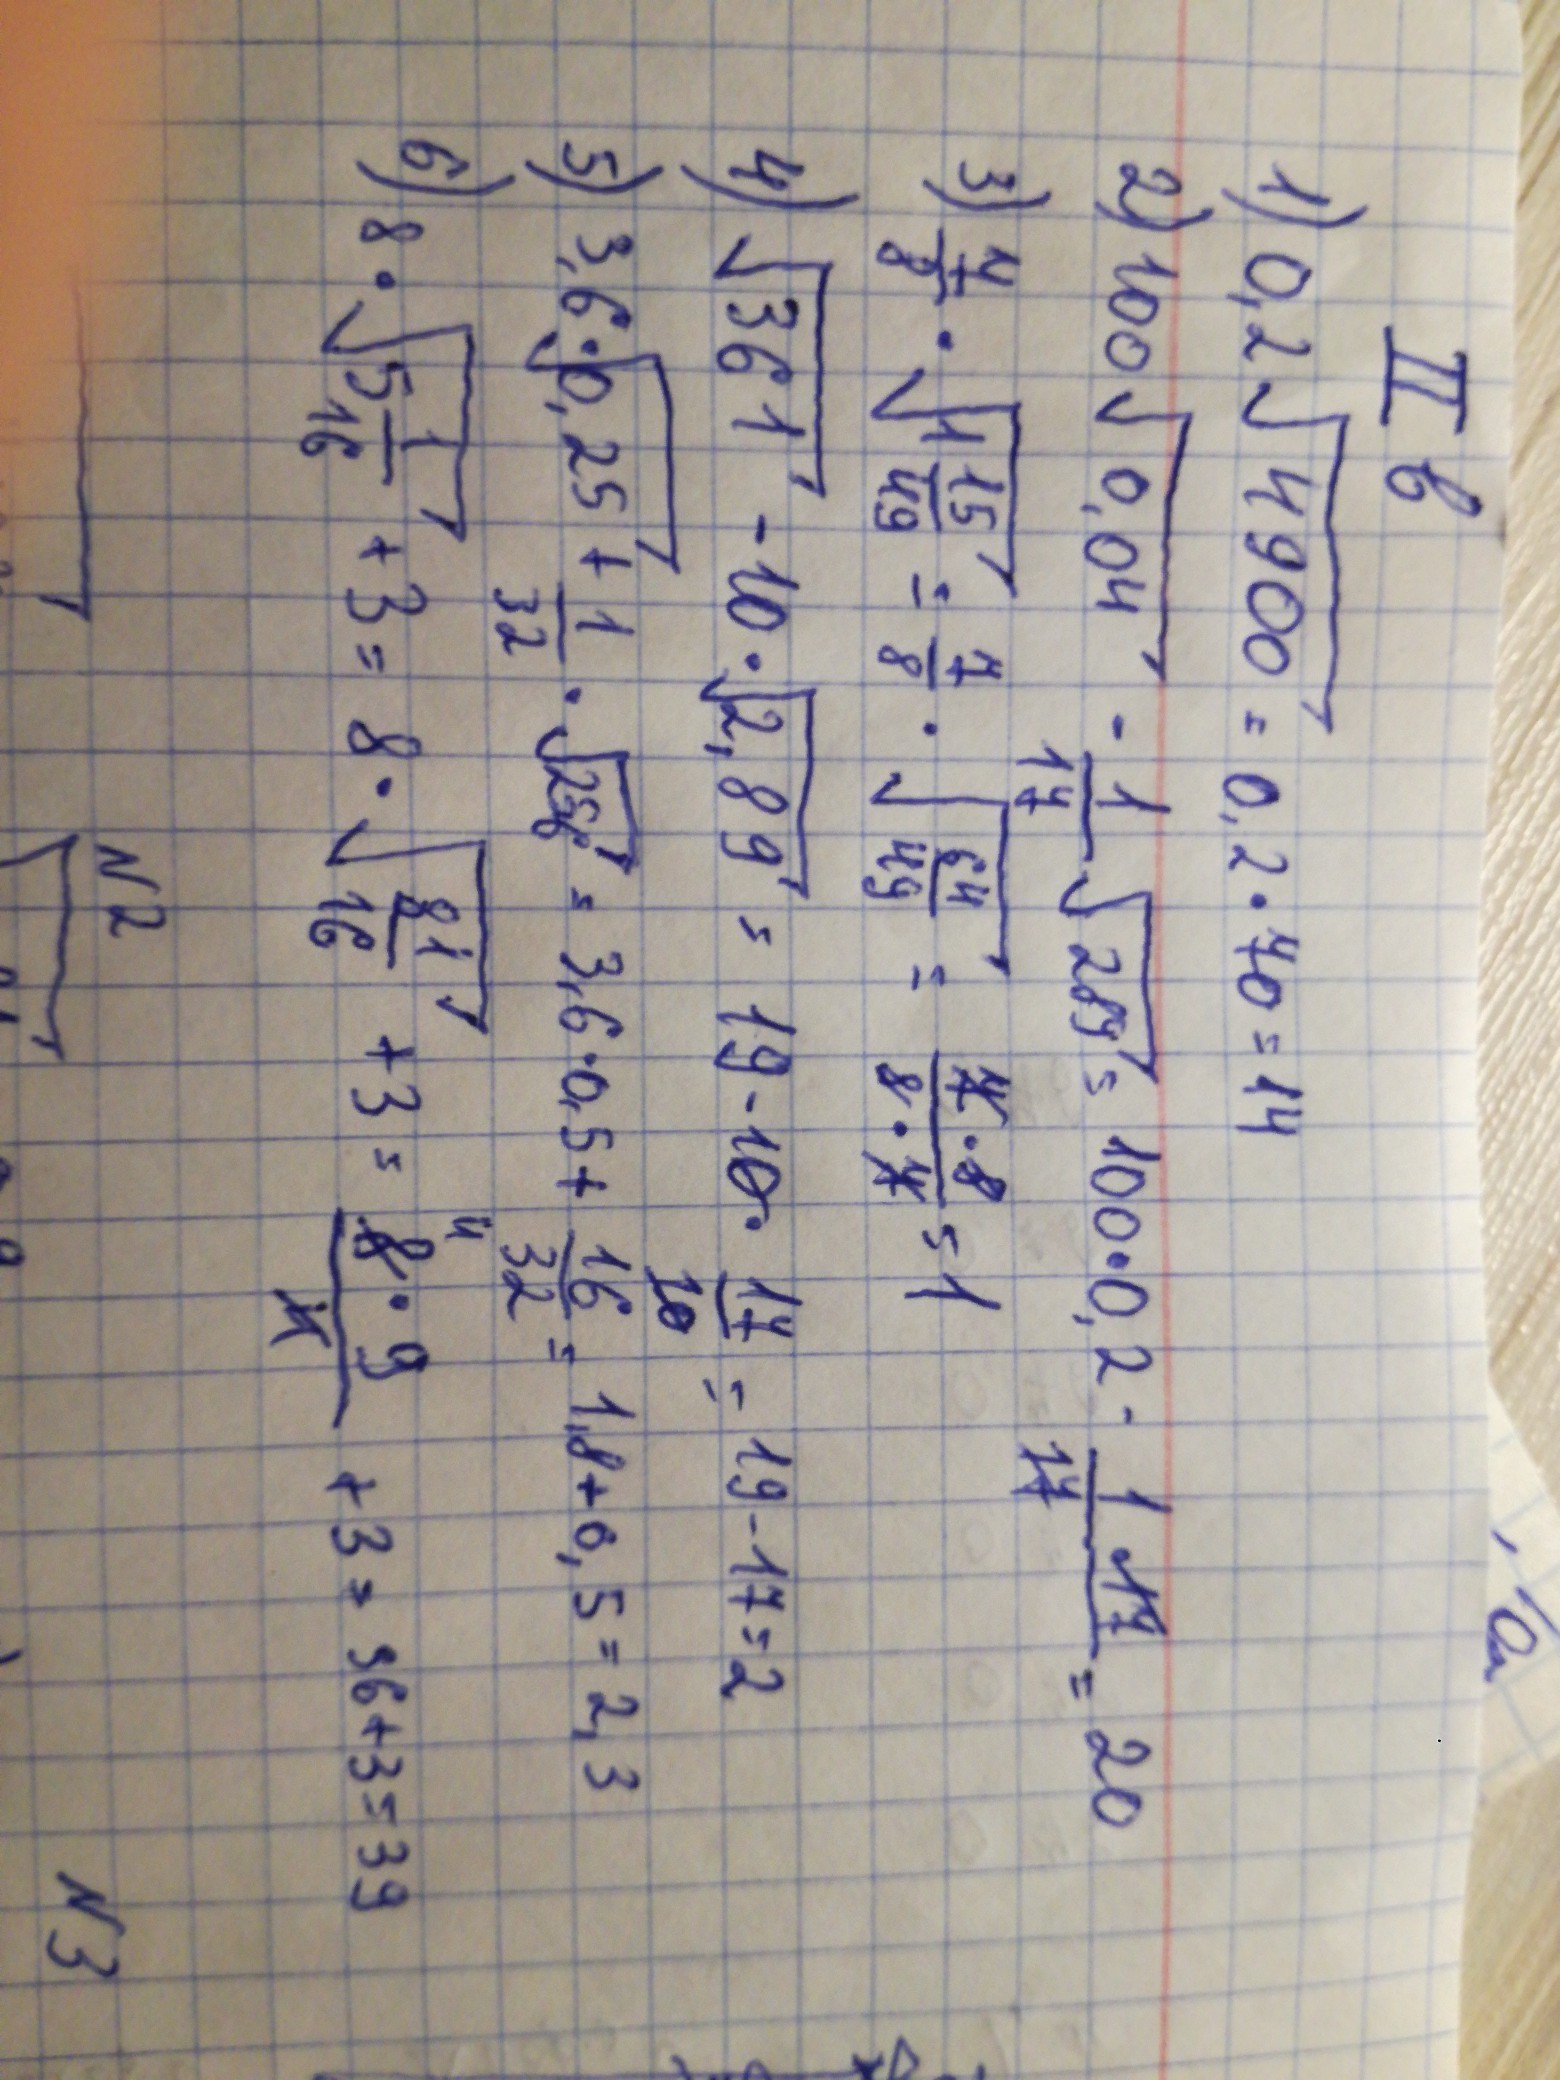 II в
1) 0,2√4900 = 0,2·70=14
2) 100√0,04 - 1/17 √289 = 100·0,2 - 1·17/17 = 20
3) 7/8 · √1 15/49 = 7/8 · √64/49 = 7·8/8·7 = 1
4) √361 - 10·√2,89 = 19-10·17/10 = 19-17=2
5) 3,6·√0,25 + 1/32 · √256 = 3,6·0,5+ 16/32 = 1,8+0,5=2,3
6) 8·√5 1/16 +3= 8·√81/16 +3= 8·9/4 +3= 36+3=39
N2 N3